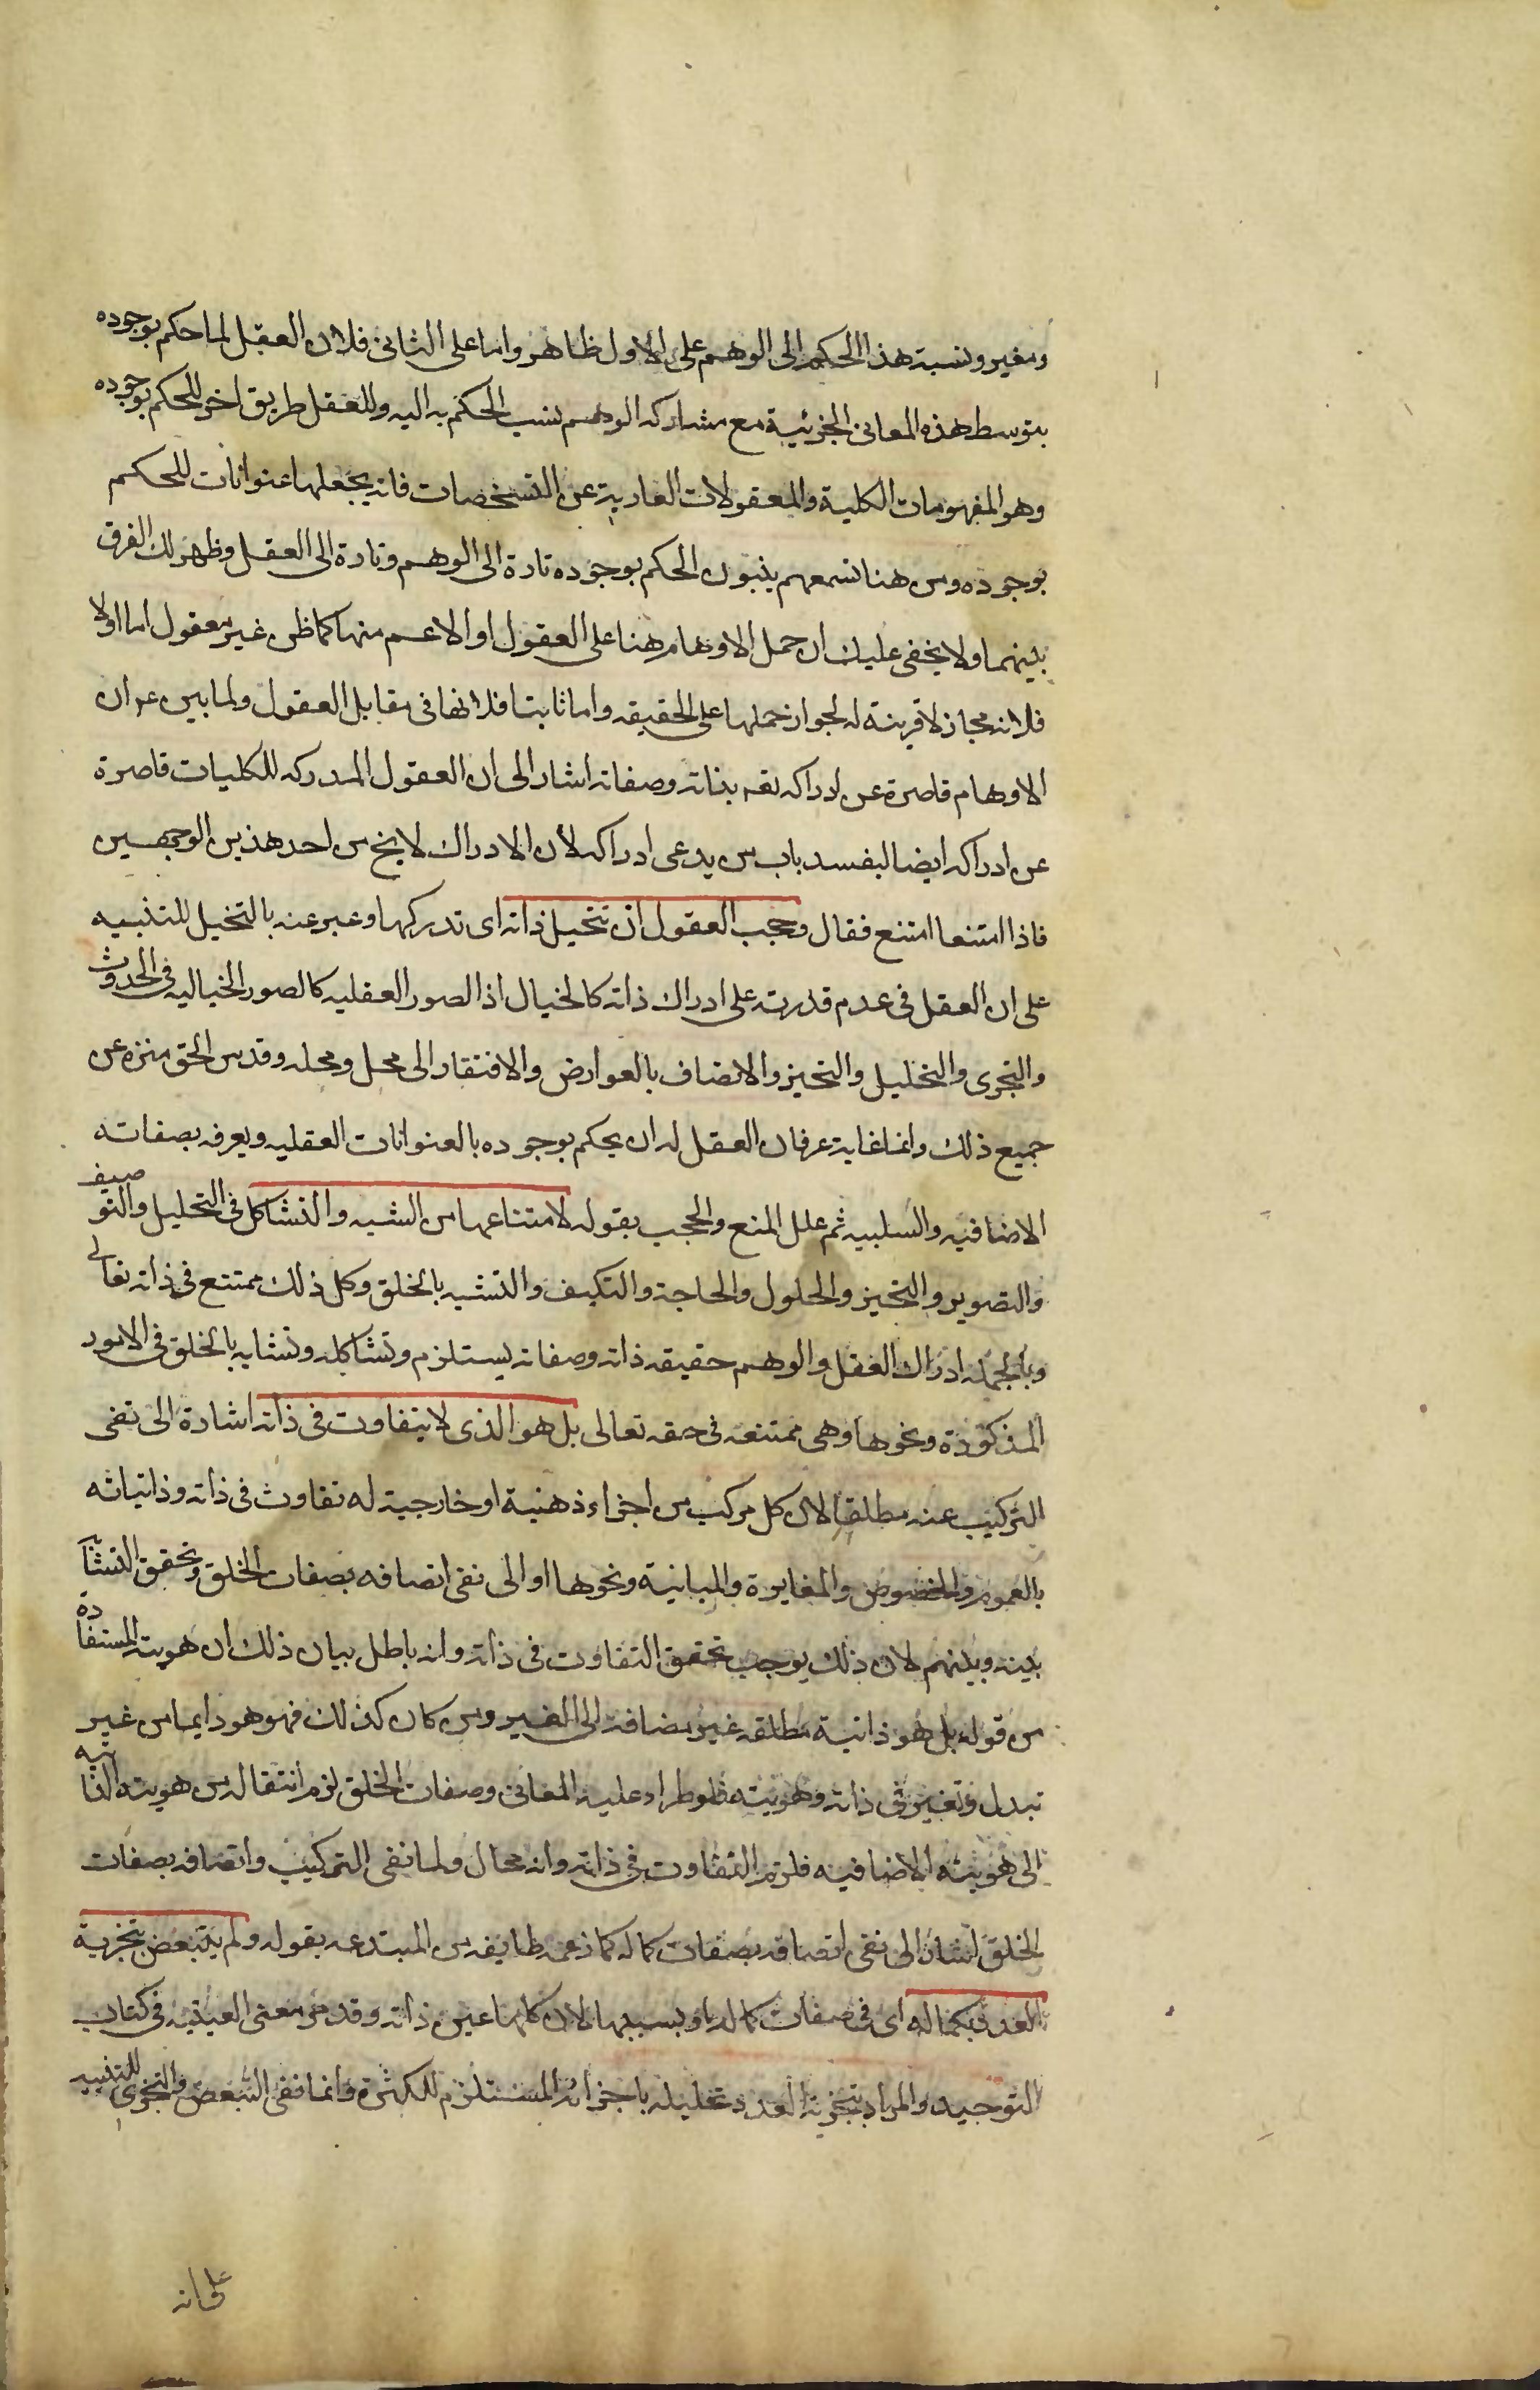 ومغير ونسبة هذا الحكم الى الوهم على الاول ظاهر واما على الثانى فلان العقل لما حكم بوجوده
بتوسط هذه المعانى الجزئية مع مشاركه الوهم نسب الحكم به اليه وللعقل طريق اخر للحكم بوجوده
وهو المفهومات الكلية والمعقولات العارية عن التشخصات فانه يجعلها عنوانات للحكم
بوجوده ومن هنا تسمعهم ينسبون الحكم بوجوده تارة الى الوهم وتارة الى العقل وظهر لك الفرق
بينهما ولا يخفى عليك ان حمل الاوهام هنا على العقول او الاعم منها كما ظن غير معقول اما اولا
فلانه مجاز لا قرينة له لجواز حملها على الحقيقه واما ثانيا فلانها فى مقابل العقول ولما بين ع ان
الاوهام قاصرة عن ادراكه تعه بذاته وصفاته اشار الى ان العقول المدركه للكليات قاصرة
عن ادراكه ايضا ليفسد باب من يدعى ادراكه لأن الادراك لا يخ من احد هذين الوجهين
فاذا امتنعا امتنع فقال وحجب العقول ان تتخيل ذاته اى تدركها وعبر عنه بالتخيل للتنبيه
على ان العقل فى عدم قدرته على ادراك ذاته كالخيال اذ الصور العقليه كالصور الخياليه فى الحدوث
والتجزى والتحليل والتحيز والاتصاف بالعوارض والافتقار الى محل ومحله وقدس الحق منزه عن
جميع ذلك وانما غاية عرفان العقل له ان يحكم بوجوده بالعنوانات العقليه ويعرفه بصفاته
الاضافيه والسلبيه ثم علل المنع والحجب بقوله لامتناعها من الشبه والتشاكل فى التحليل والتوصيف
والتصوير والتحيز والحلول والحاجة والتكيف والتشبه بالخلق وكل ذلك ممتنع فى ذاته تعالى
وبالجمله ادراك العقل والوهم حقيقه ذاته وصفاته يستلزم وتشاكله وتشابه بالخلق فى الامور
المذكورة ونحوها وهى ممتنعه فى حقه تعالى بل هو الذى لا يتفاوت فى ذاته اشارة الى نفى
التركيب عنه مطلقا لان كل مركب من اجزاء ذهنية او خارجية له تفاوت فى ذاته وذاتياته
بالعموم والخصوص والمغايرة والمباينة ونحوها او الى نفى اتصافه بصفات الخلق وتحقق التشا
بينه وبينهم لان ذلك يوجب تحقق التفاوت فى ذاته وانه باطل بيان ذلك ان هويته المستفادة
من قوله بل هو ذاتية مطلقه غير مضافة الى الغير ومن كان كذلك فهو هو دايما من غير
تبدل وتغير فى ذاته وهويته فلو طراء عليه المعانى وصفات الخلق لزم انتقاله من هويته الذاتيه
الى هويته الاضافيه فلزم التفاوت فى ذاته وانه محال ولما نفى التركيب واتصافه بصفات
الخلق اشار الى نفى اتصافه بصفات كماله كما زعمه طايفه من المبتدعه بقوله ولم يتبعض بتجزية
العدد فى كماله اى فى صفات كماله او بسببها لان كلها عين ذاته وقد مر معنى العينيه فى كتاب
التوحيد والمراد بتجزية العدد تحليله باجزائه المستلزم للكثرة وانما نفى التبعض والتجزى للتنبيه
على انه